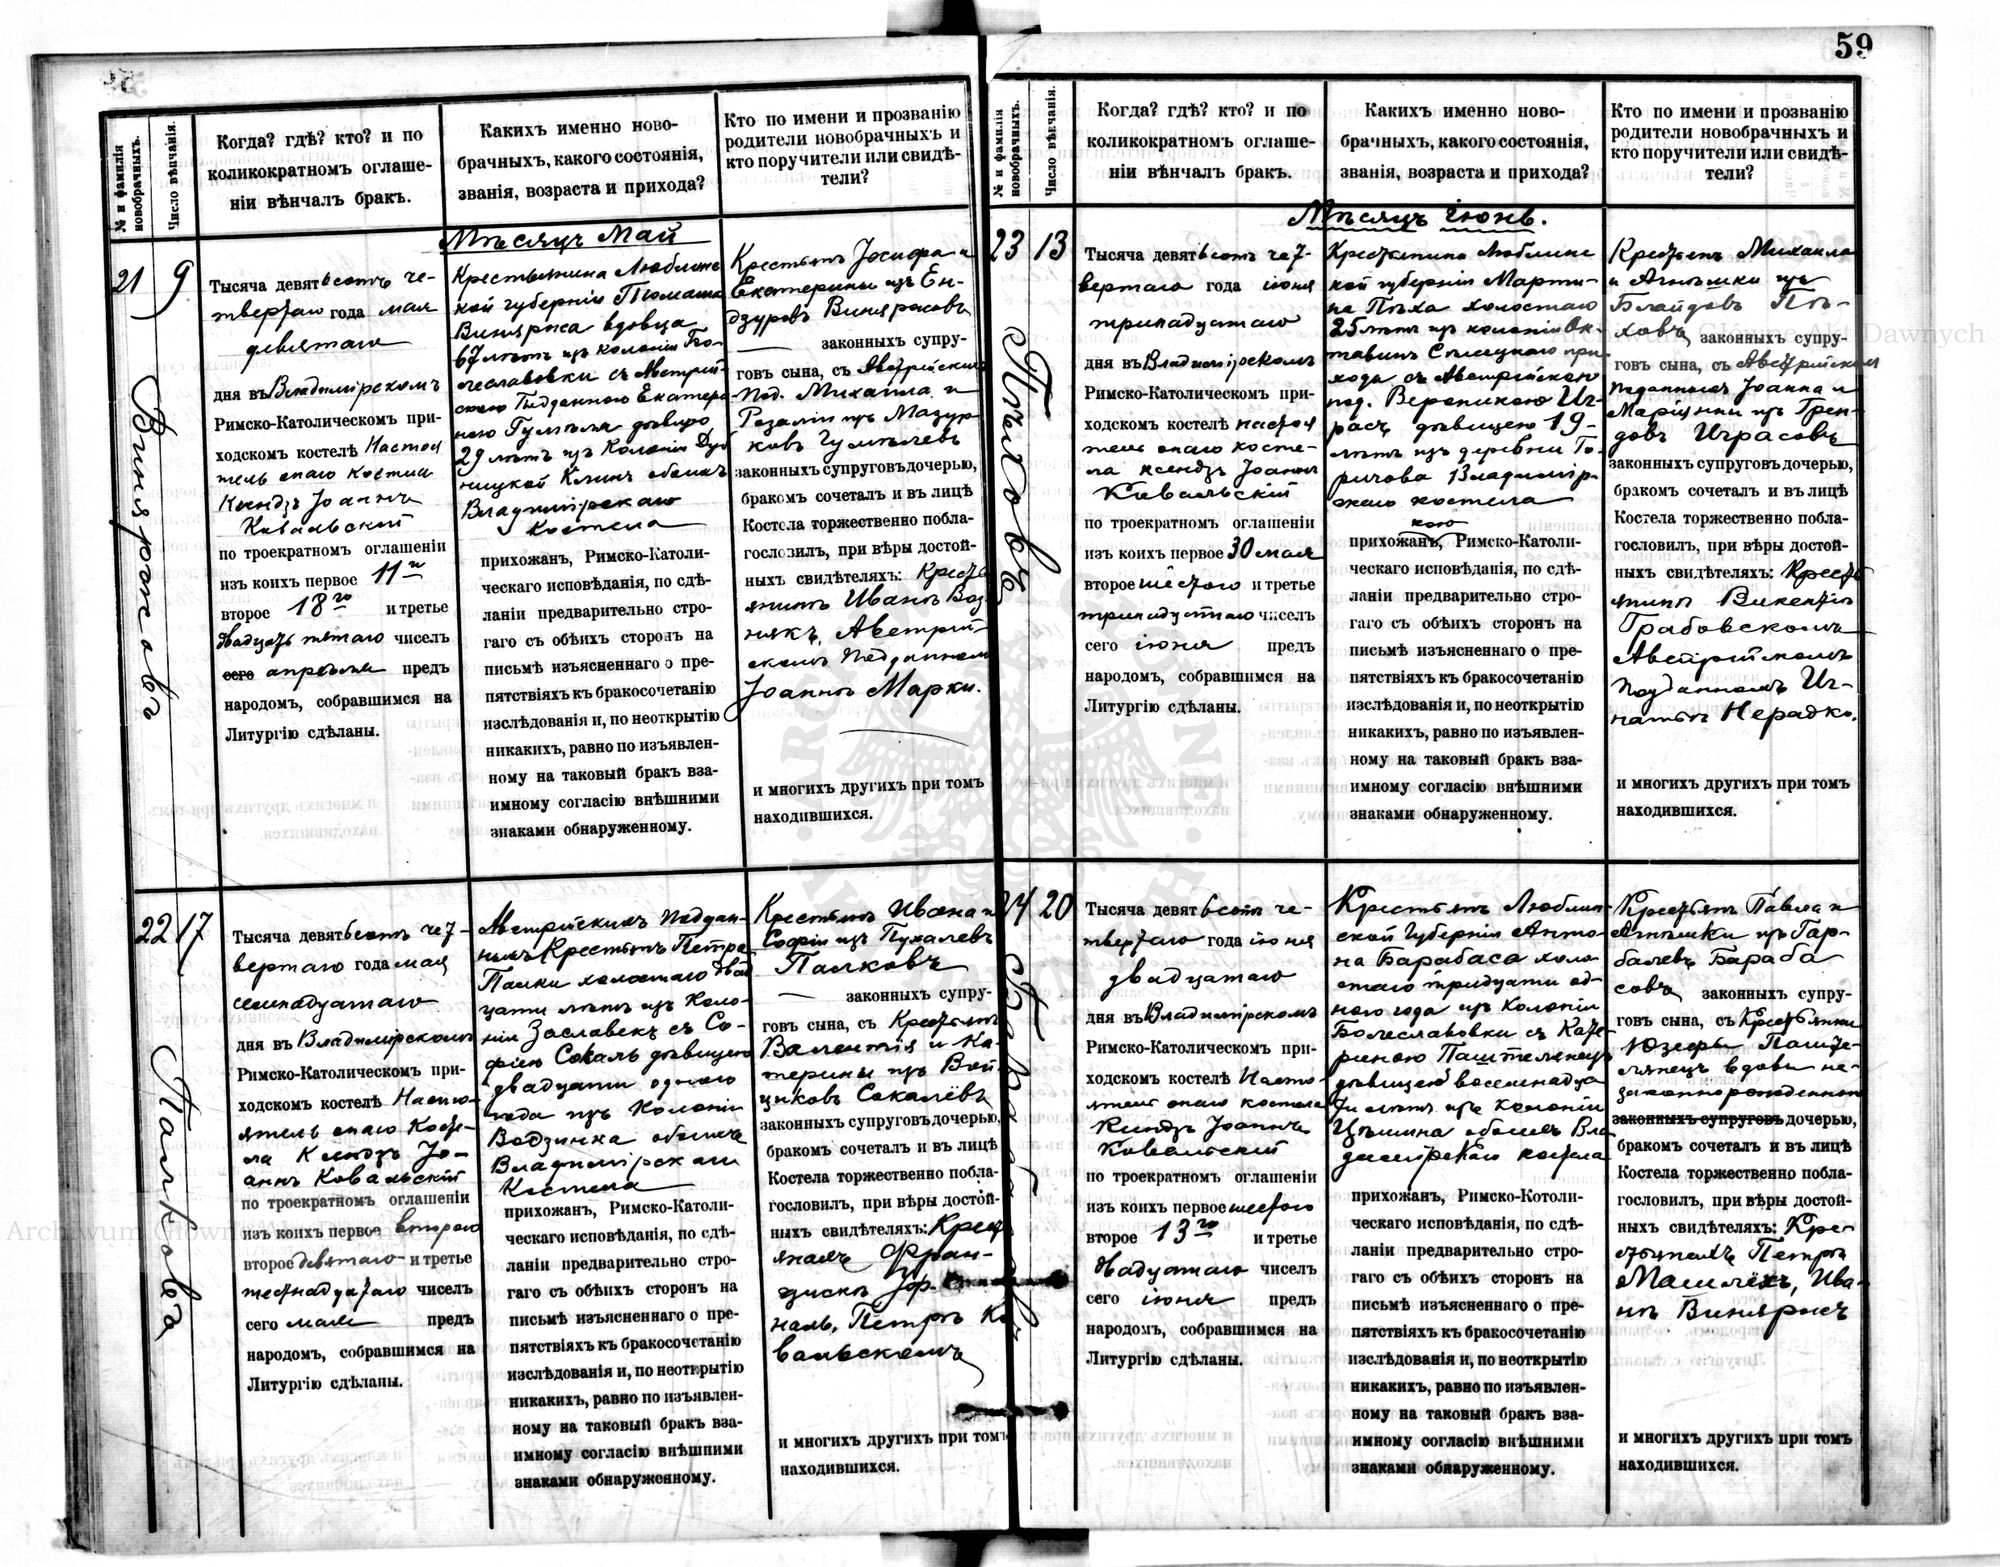 59
№ и фамилія новобрачныхъ.
Число вѣнчанія.
Когда? гдѣ? кто? и по
коликократномъ оглаше-
ніи вѣнчалъ бракъ.
Какихъ именно ново-
брачныхъ, какого состоянія,
званія, возраста и прихода?
Кто по имени и прозванію
родители новобрачныхъ и
кто поручители или свидѣ-
тели?
Мѣсяцъ Май
21
9
Виняржовъ
Тысяча девятьсотъ че-
твертаго года мая
девятаго
дня въ Владимірскомъ
Римско-Католическомъ при-
ходскомъ костелѣ Настоя
тель онаго костела
Ксендзъ Іоаннъ
Ковальскій
по троекратномъ оглашеніи
изъ коихъ первое 11го
второе 18го и третье
двадцать пятаго чиселъ
сего апрѣля предъ
народомъ, собравшимся на
Литургію сдѣланы.
Крестьянина Люблинс
кой губерніи Томаша
Виняржа вдовца
67 лѣтъ изъ колоніи Бо-
леславовки съ Австрій-
скою Подданною Екатери
ною Гумѣля дѣвицею
29 лѣтъ изъ Колоніи Дуб
ницкой обоихъ
Владимірскаго
костела
прихожанъ, Римско-Католи-
ческаго исповѣданія, по сдѣ-
ланіи предварительно стро-
гаго съ обѣихъ сторонъ на
письмѣ изъясненнаго о пре-
пятствіяхъ къ бракосочетанію
изслѣдованія и, по неоткрытію
никакихъ, равно по изъявлен-
ному на таковый бракъ вза-
имному согласію внѣшними
знаками обнаруженному.
Крестьянъ Іосифа и
Екатерины изъ Ен-
дзуровъ Виняржовъ
законныхъ супру-
говъ сына, съ Австрійских
под. Михаила и
Розаліи изъ Мазур-
ковъ Гумѣлевъ
законныхъ супруговъ дочерью,
бракомъ сочеталъ и въ лицѣ
Костела торжественно побла-
гословилъ, при вѣры достой-
ныхъ свидѣтеляхъ: Кресть
янинъ Иванъ Воз-
някъ, Австрій-
скомъ подданномъ
Іоаннъ Марки.
и многихъ другихъ при томъ
находившихся.
22
17
Палковъ
Тысяча девятьсотъ чет-
вертаго года мая
семнадцатаго
дня въ Владимірскомъ
Римско-Католическомъ при-
ходскомъ костелѣ Насто-
ятель онаго Косте-
ла Ксендзъ Іо-
аннъ Ковальскій
по троекратномъ оглашеніи
изъ коихъ первое второго
второе девятаго и третье
шестнадцатаго чиселъ
сего мая предъ
народомъ, собравшимся на
Литургію сдѣланы.
Австрійскихъ Поддан-
ныхъ Крестьянъ Петра
Палки холостаго двад
цати лѣтъ изъ Коло-
ніи Заславекъ съ Со-
фіею Сокаль дѣвицею
двадцати одного
года изъ Колоніи
Водзинка обоихъ
Владимірскаго
Костела
прихожанъ, Римско-Католи-
ческаго исповѣданія, по сдѣ-
ланіи предварительно стро-
гаго съ обѣихъ сторонъ на
письмѣ изъясненнаго о пре-
пятствіяхъ къ бракосочетанію
изслѣдованія и, по неоткрытію
никакихъ, равно по изъявлен-
ному на таковый бракъ вза-
имному согласію внѣшними
знаками обнаруженному.
Крестьянъ Ивана и
Софіи изъ Пухалевъ
Палковъ
законныхъ супру-
говъ сына, съ Крестьянъ
Валентія и Ка-
терины изъ Вой-
циковъ Сокалёвъ
законныхъ супруговъ дочерью,
бракомъ сочеталъ и въ лицѣ
Костела торжественно побла-
гословилъ, при вѣры достой-
ныхъ свидѣтеляхъ: Крест
янахъ Фран-
цискъ
Петръ Ко
вальскомъ
и многихъ другихъ при томъ
находившихся.
№ и фамилія новобрачныхъ.
Число вѣнчанія.
Когда? гдѣ? кто? и по
коликократномъ оглаше-
ніи вѣнчалъ бракъ.
Какихъ именно ново-
брачныхъ, какого состоянія,
званія, возраста и прихода?
Кто по имени и прозванію
родители новобрачныхъ и
кто поручители или свидѣ-
тели?
Мѣсяцъ Іюнь.
23
13
Пѣховъ
Тысяча девятьсотъ чет-
вертаго года іюня
тринадцатаго
дня въ Владимірскомъ
Римско-Католическомъ при-
ходскомъ костелѣ настоя
тель онаго косте-
ла ксендзъ Іоаннъ
Ковальскій
по троекратномъ оглашеніи
изъ коихъ первое 30 мая
второе шестого и третье
тринадцатаго чиселъ
сего іюня предъ
народомъ, собравшимся на
Литургію сдѣланы.
Крестьянина Люблинс
кой губерніи Марти-
на Пѣха холостаго
25 лѣтъ изъ колоніи Ок-
тавинъ при-
хода съ Австрійскою
под. Вероникою Иг-
расъ дѣвицею 19-
лѣтъ изъ деревни Го-
ричова Владимір-
скаго костела
кою
прихожанъ, Римско-Католи-
ческаго исповѣданія, по сдѣ-
ланіи предварительно стро-
гаго съ обѣихъ сторонъ на
письмѣ изъясненнаго о пре-
пятствіяхъ къ бракосочетанію
изслѣдованія и, по неоткрытію
никакихъ, равно по изъявлен-
ному на таковый бракъ вза-
имному согласію внѣшними
знаками обнаруженному.
Крестьянъ Михаила
и Агнѣшки изъ
Блайдовъ Пѣ-
ховъ законныхъ супру-
говъ сына, съ Австрійскихъ
подданныхъ Іоанна и
Маріянны изъ Грен-
довъ Играсовъ
законныхъ супруговъ дочерью,
бракомъ сочеталъ и въ лицѣ
Костела торжественно побла-
гословилъ, при вѣры достой-
ныхъ свидѣтеляхъ: Кресть
янинъ Викентій
Грабовскомъ
Австрійскомъ
подданномъ Иг-
натъ Нерадко.
и многихъ другихъ при томъ
находившихся.
24
20
Барабасовъ
Тысяча девятьсотъ че-
твертаго года іюня
двадцатаго
дня въ Владимірскомъ
Римско-Католическомъ при-
ходскомъ костелѣ Насто-
ятель онаго костела
Ксендзъ Іоаннъ
Ковальскій
по троекратномъ оглашеніи
изъ коихъ первое шестого
второе 13го и третье
двадцатаго чиселъ
сего іюня предъ
народомъ, собравшимся на
Литургію сдѣланы.
Крестьянъ Люблин-
ской губерніи Анто-
на Барабаса холо
стаго тридцати од-
ного года изъ Колоніи
Болеславовки съ Кате
риною Паштелянецъ
дѣвицею восемнадца
ти лѣтъ изъ колоніи
Цѣшина обоихъ Вла
димірскаго костела
прихожанъ, Римско-Котоли-
ческаго исповѣданія, по сдѣ-
ланіи предварительно стро-
гаго съ обѣихъ сторонъ на
письмѣ изъясненнаго о пре-
пятствіяхъ къ бракосочетанію
изслѣдованія и, по неоткрытію
никакихъ, равно по изъявлен-
ному на таковый бракъ вза-
имному согласію внѣшними
знаками обнаруженному.
Крестьянъ Павла и
Агнѣшки изъ Гар-
балевъ Бараба
совъ законныхъ супру-
говъ сына, съ Крестьянки
Юзефы Паште-
лянецъ вдовы не-
законнорожденною
законныхъ супруговъ дочерью,
бракомъ сочеталъ и въ лицѣ
Костела торжественно побла-
гословилъ, при вѣры достой-
ныхъ свидѣтеляхъ: Кре-
стьянахъ Петръ
Машлёхъ, Ива-
нъ Виняржъ
и многихъ другихъ при томъ
находившихся.
Archiwum Główne Akt Dawnych
Archiwum Główne Akt Dawnych